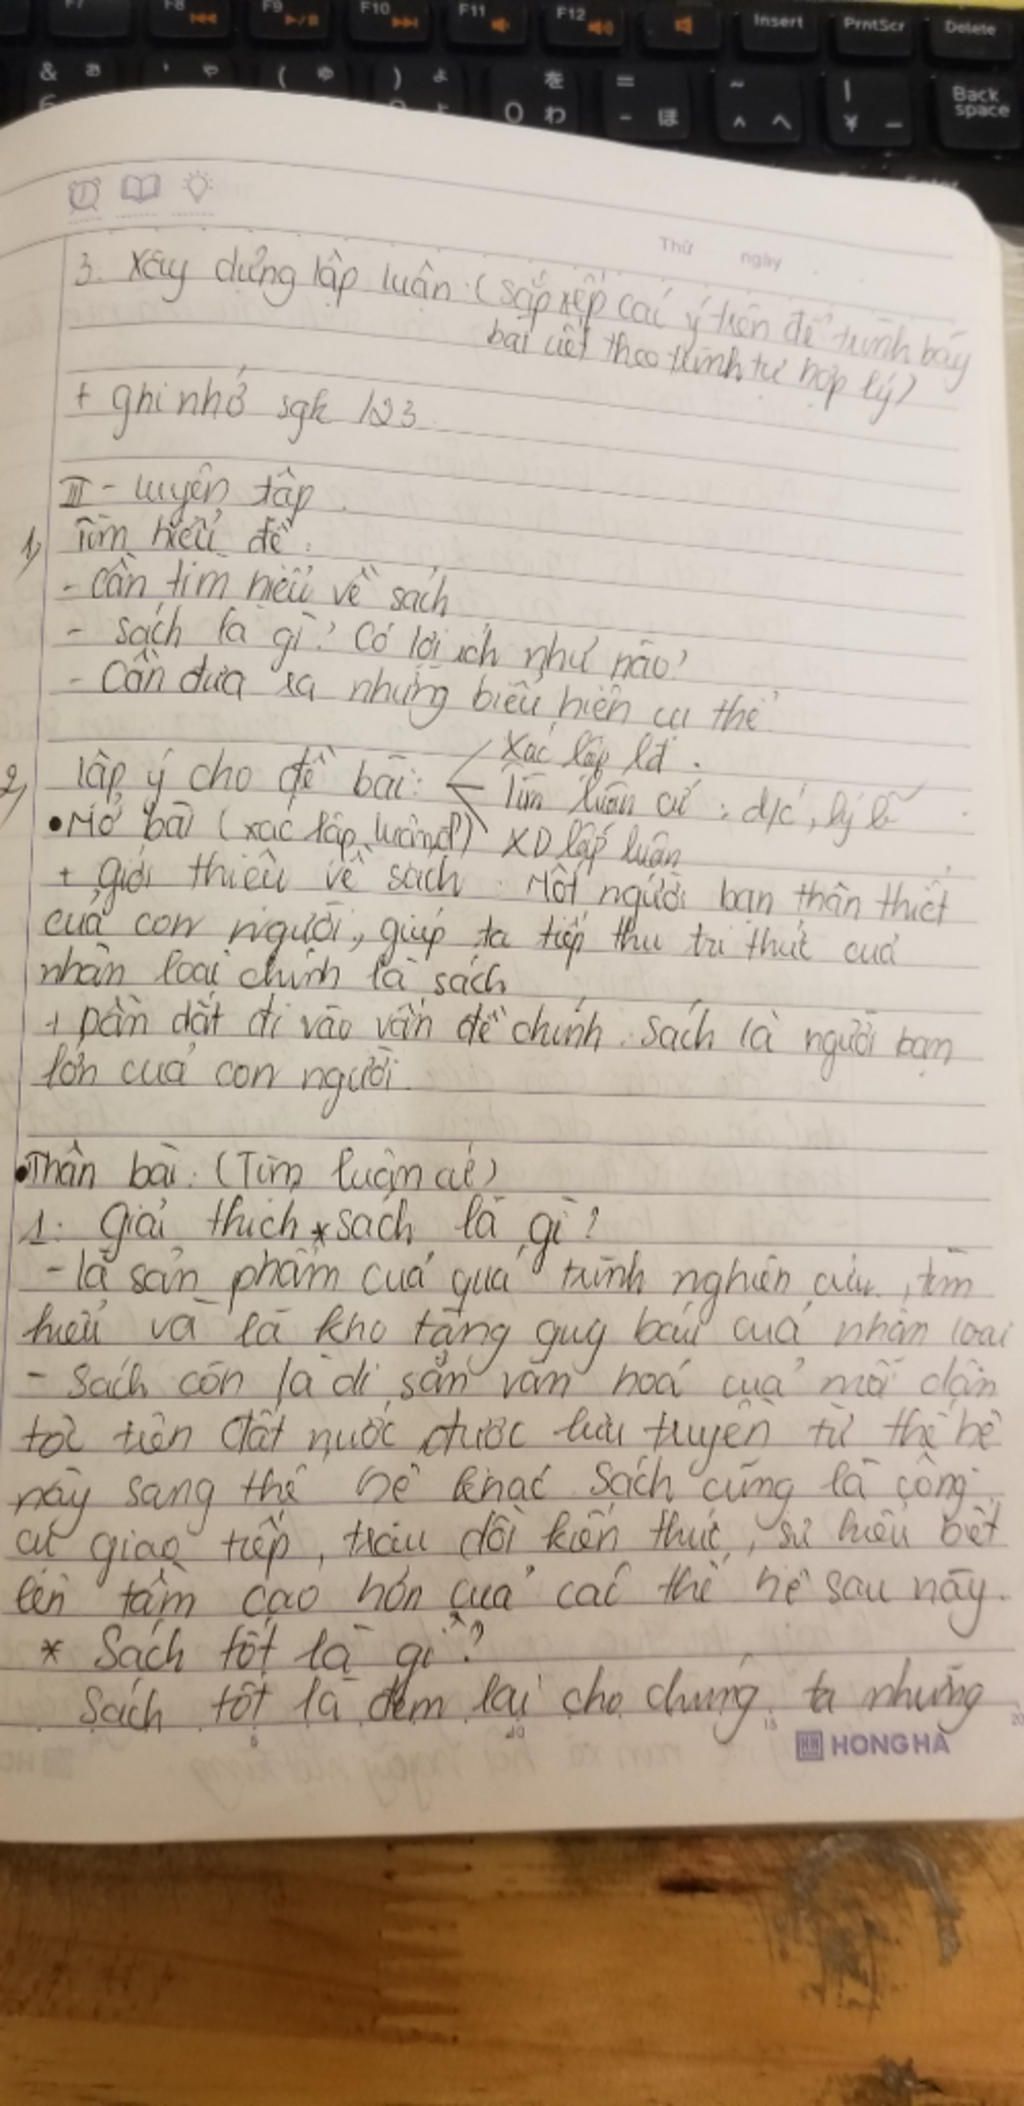 F7 F8 F9 F10 F11 F12 Insert PrntScr Delete
& ぉ ' ゃ ( ゅ ) ょ を = ~ |
6 0 わ - ほ ^ へ ¥ ー Back space
Thứ ngày
3. Xây dựng lập luận: (sắp xếp các ý trên để trình bày
bài viết theo trình tự hợp lý)
+ ghi nhớ sgk 123
III - luyện tập
1) Tìm hiểu đề:
- Cần tìm hiểu về sách
- sách là gì? Có lợi ích như nào?
- Cần đưa ra những biểu hiện cụ thể
2) lập ý cho đề bài: Xác lập lđ.
Tìm luận cứ: d/c, lý lẽ
• Mở bài (xác lập luận đ) XD lập luận
+ giới thiệu về sách: Một người bạn thân thiết
của con người, giúp ta tiếp thu tri thức của
nhân loại chính là sách
+ Dẫn dắt đi vào vấn đề chính: Sách là người bạn
lớn của con người.
• Thân bài: (Tìm luận cứ)
1. Giải thích * sách là gì?
- là sản phẩm của quá trình nghiên cứu, tìm
hiểu và là kho tàng quý báu của nhân loại
- Sách còn là di sản văn hoá của mỗi dân
tộc trên đất nước được lưu truyền từ thế hệ
này sang thế hệ khác Sách cũng là công
cụ giao tiếp, trau dồi kiến thức, sự hiểu biết
lên tầm cao hơn của các thế hệ sau này.
* Sách tốt là gì?
Sách tốt là đem lại cho chúng ta những
5 10 15 20
HONG HA